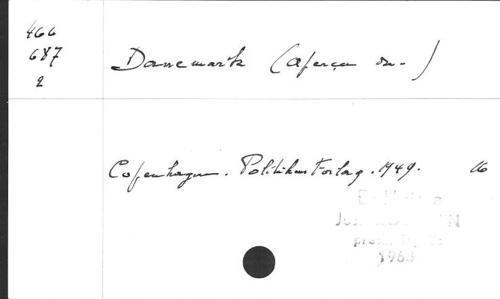 466
687
2
Danemark (Aperçu du-)
Copenhague. Politikens Forlag. 1949. 16
1968